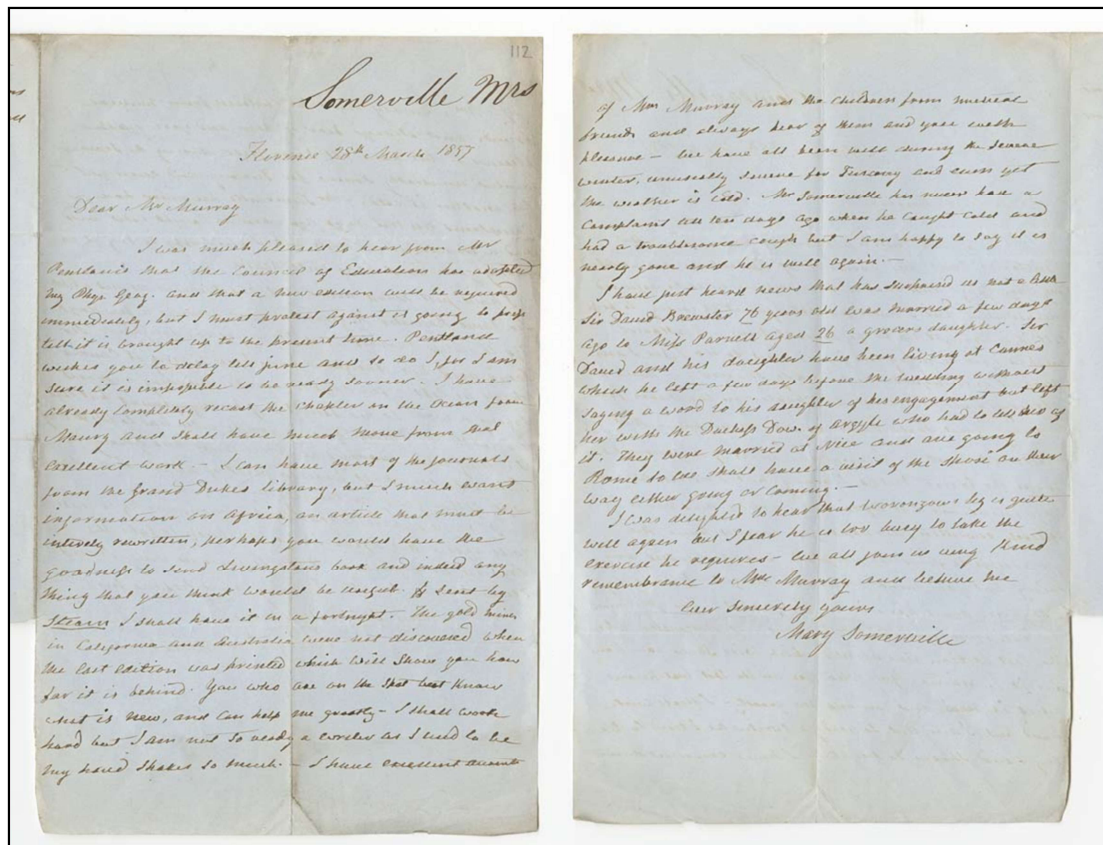 112
Somerville Mrs
Florence 28th March 1857
Dear Mr Murray
I was much pleased to hear from Mr
Pentland that the Council of Education has adopted
my Phys. Geog. and that a new edition will be required
immediately, but I must protest against it going to press
till it is brought up to the present time. Pentland
wishes you to delay till june and so do I, for I am
sure it is impossible to be ready sooner. I have
already completely recast the chapter on the Ocean from
Maury and shall have much more from that
excellent work – I can have most of the journals
from the Grand Dukes library, but I much want
information on Africa, an article that must be
intirely rewritten, perhaps you would have the
goodness to send Livingstons book and indeed any
thing that you think would be useful. If sent by
Steam I shall have it in a fortnight. The gold mines
in California and Australia were not discovered when
the last edition was printed which will show you how
far it is behind. You who are on the spot best know
what is new, and can help me greatly – I shall work
hard but I am not so ready a writer as I used to be
my hand shakes so much. – I have excellent accounts
of Mrs Murray and the children from mutual
friends and always hear of them and you with
pleasure – We have all been well during the severe
winter, unusually severe for Tuscany and even yet
the weather is cold. Mr Somerville has never had a
complaint till ten days ago when he caught cold and
had a troublesome cough but I am happy to say it is
nearly gone and he is well again. –
I have just heard news that has surprised us not a little
Sir David Brewster 76 years old was married a few days
ago to Miss Parnell aged 26 a grocers daughter. Sir
David and his daughter have been living at Cannes
which he left a few days before the wedding without
saying a word to his daughter of his engagement but left
her with the Duchess Dow. of Argyle who had to tell her of
it. They were married at Nice and are going to
Rome so we shall have a visit of the on their
way either going or coming. –
I was delighted to hear that Woronzows leg is quite
well again but I fear he is too busy to take the
exercise he requires – We all join in very kind
remembrance to Mrs Murray and believe me
Ever sincerely yours
Mary Somerville